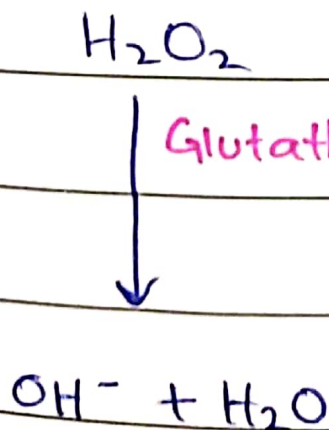 H₂O₂
Glutat
OH⁻ + H₂O